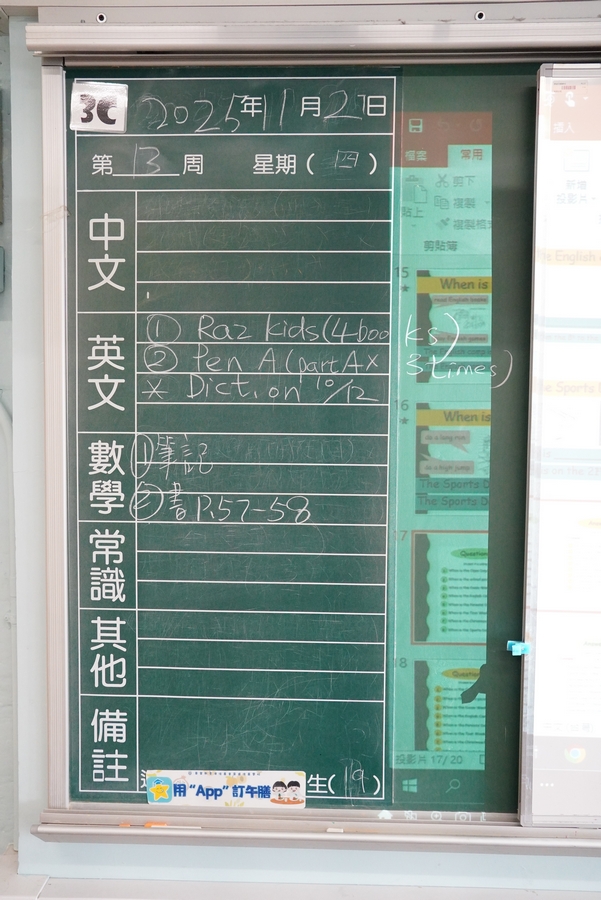 3C
2025年11月27日
第13周 星期(四)
中文
英文
① Raz kids (4 books)
② Pen A (part A x 3 times)
* Dictation 10/12
數學
① 筆記
② 書 P.57-58
常識
其他
備註
用 “App” 訂午膳
生(19)
檔案 常用
剪下
貼上
複製
剪貼簿
15
When is
16
When is
The Sports D
The Sports D
17
Question
18
Question
投影片 17/20
插入
新增
投影片